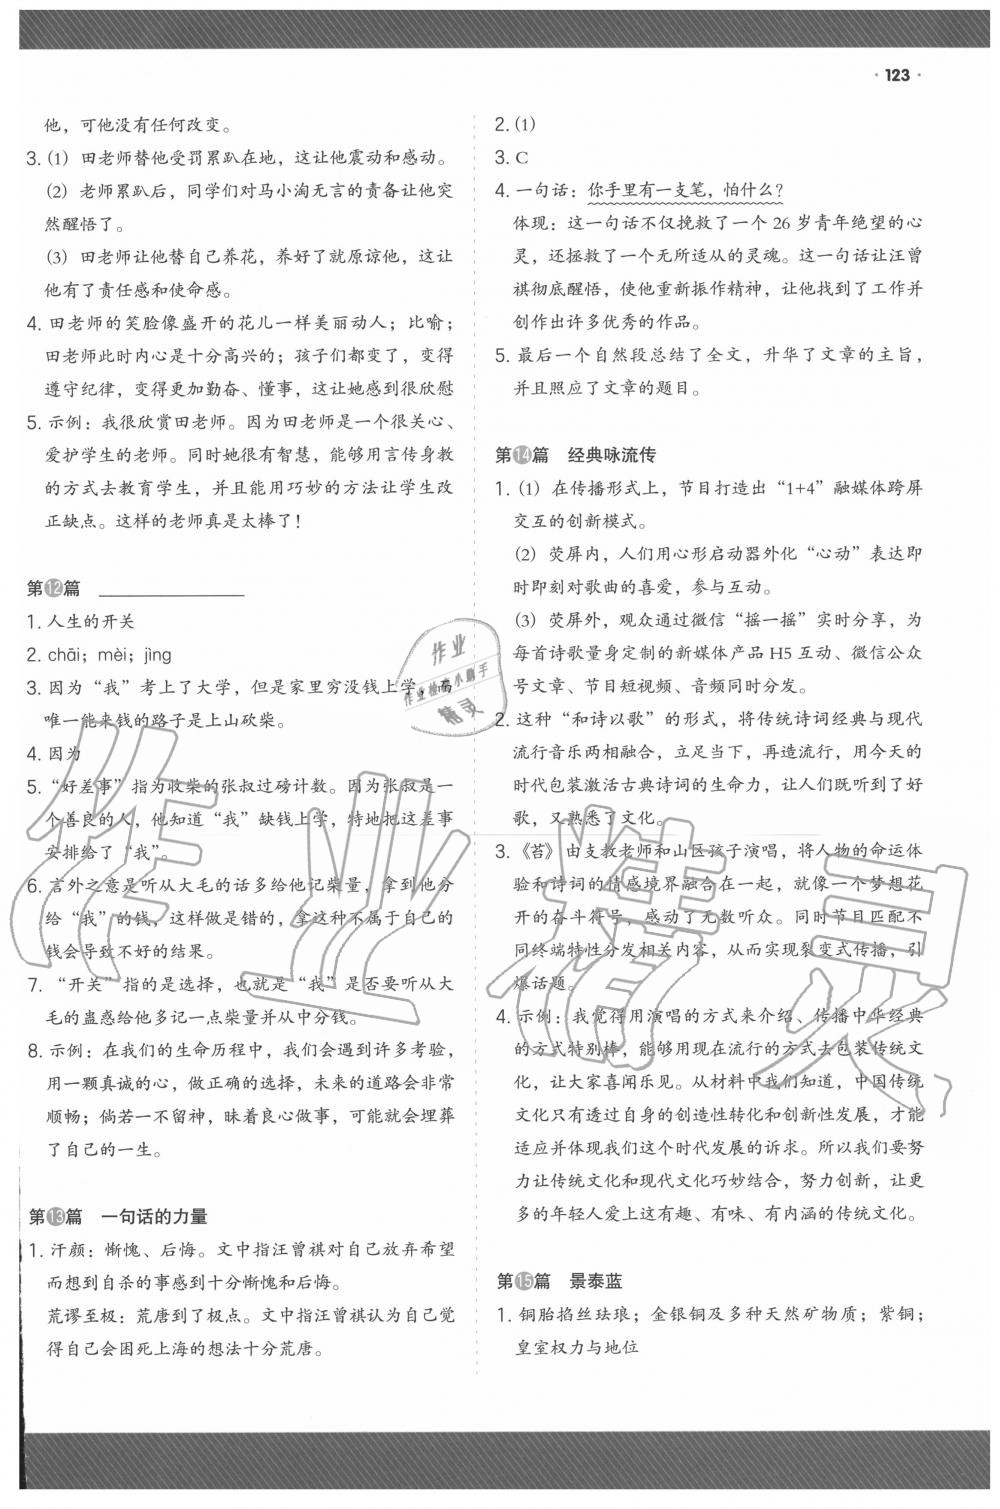 · 123 ·
他，可他没有任何改变。
3. (1) 田老师替他受罚累趴在地，这让他震动和感动。
(2) 老师累趴后，同学们对马小淘无言的责备让他突
然醒悟了。
(3) 田老师让他替自己养花，养好了就原谅他，这让
他有了责任感和使命感。
4. 田老师的笑脸像盛开的花儿一样美丽动人；比喻；
田老师此时内心是十分高兴的；孩子们都变了，变得
遵守纪律，变得更加勤奋、懂事，这让她感到很欣慰
5. 示例：我很欣赏田老师。因为田老师是一个很关心、
爱护学生的老师。同时她很有智慧，能够用言传身教
的方式去教育学生，并且能用巧妙的方法让学生改
正缺点。这样的老师真是太棒了！
第12篇
1. 人生的开关
2. chāi；mèi；jìng
3. 因为“我”考上了大学，但是家里穷没钱上学，而
唯一能来钱的路子是上山砍柴。
4. 因为
5. “好差事”指为收柴的张叔过磅计数。因为张叔是一
个善良的人，他知道“我”缺钱上学，特地把这差事
安排给了“我”。
6. 言外之意是听从大毛的话多给他记柴量，拿到他分
给“我”的钱，这样做是错的，拿这种不属于自己的
钱会导致不好的结果。
7. “开关”指的是选择，也就是“我”是否要听从大
毛的蛊惑给他多记一点柴量并从中分钱。
8. 示例：在我们的生命历程中，我们会遇到许多考验，
用一颗真诚的心，做正确的选择，未来的道路会非常
顺畅；倘若一不留神，昧着良心做事，可能就会埋葬
了自己的一生。
第13篇 一句话的力量
1. 汗颜：惭愧、后悔。文中指汪曾祺对自己放弃希望
而想到自杀的事感到十分惭愧和后悔。
荒谬至极：荒唐到了极点。文中指汪曾祺认为自己觉
得自己会困死上海的想法十分荒唐。
2. (1)
3. C
4. 一句话：你手里有一支笔，怕什么？
体现：这一句话不仅挽救了一个 26 岁青年绝望的心
灵，还拯救了一个无所适从的灵魂。这一句话让汪曾
祺彻底醒悟，使他重新振作精神，让他找到了工作并
创作出许多优秀的作品。
5. 最后一个自然段总结了全文，升华了文章的主旨，
并且照应了文章的题目。
第14篇 经典咏流传
1. (1) 在传播形式上，节目打造出“1+4”融媒体跨屏
交互的创新模式。
(2) 荧屏内，人们用心形启动器外化“心动”表达即
时即刻对歌曲的喜爱，参与互动。
(3) 荧屏外，观众通过微信“摇一摇”实时分享，为
每首诗歌量身定制的新媒体产品 H5 互动、微信公众
号文章、节目短视频、音频同时分发。
2. 这种“和诗以歌”的形式，将传统诗词经典与现代
流行音乐两相融合，立足当下，再造流行，用今天的
时代包装激活古典诗词的生命力，让人们既听到了好
歌，又熟悉了文化。
3. 《苔》由支教老师和山区孩子演唱，将人物的命运体
验和诗词的情感境界融合在一起，就像一个梦想花
开的奋斗符号，感动了无数听众。同时节目匹配不
同终端特性分发相关内容，从而实现裂变式传播，引
爆话题。
4. 示例：我觉得用演唱的方式来介绍、传播中华经典
的方式特别棒，能够用现在流行的方式去包装传统文
化，让大家喜闻乐见。从材料中我们知道，中国传统
文化只有透过自身的创造性转化和创新性发展，才能
适应并体现我们这个时代发展的诉求。所以我们要努
力让传统文化和现代文化巧妙结合，努力创新，让更
多的年轻人爱上这有趣、有味、有内涵的传统文化。
第15篇 景泰蓝
1. 铜胎掐丝珐琅；金银铜及多种天然矿物质；紫铜；
皇室权力与地位
作业
作业检查小助手
精灵
作业精灵